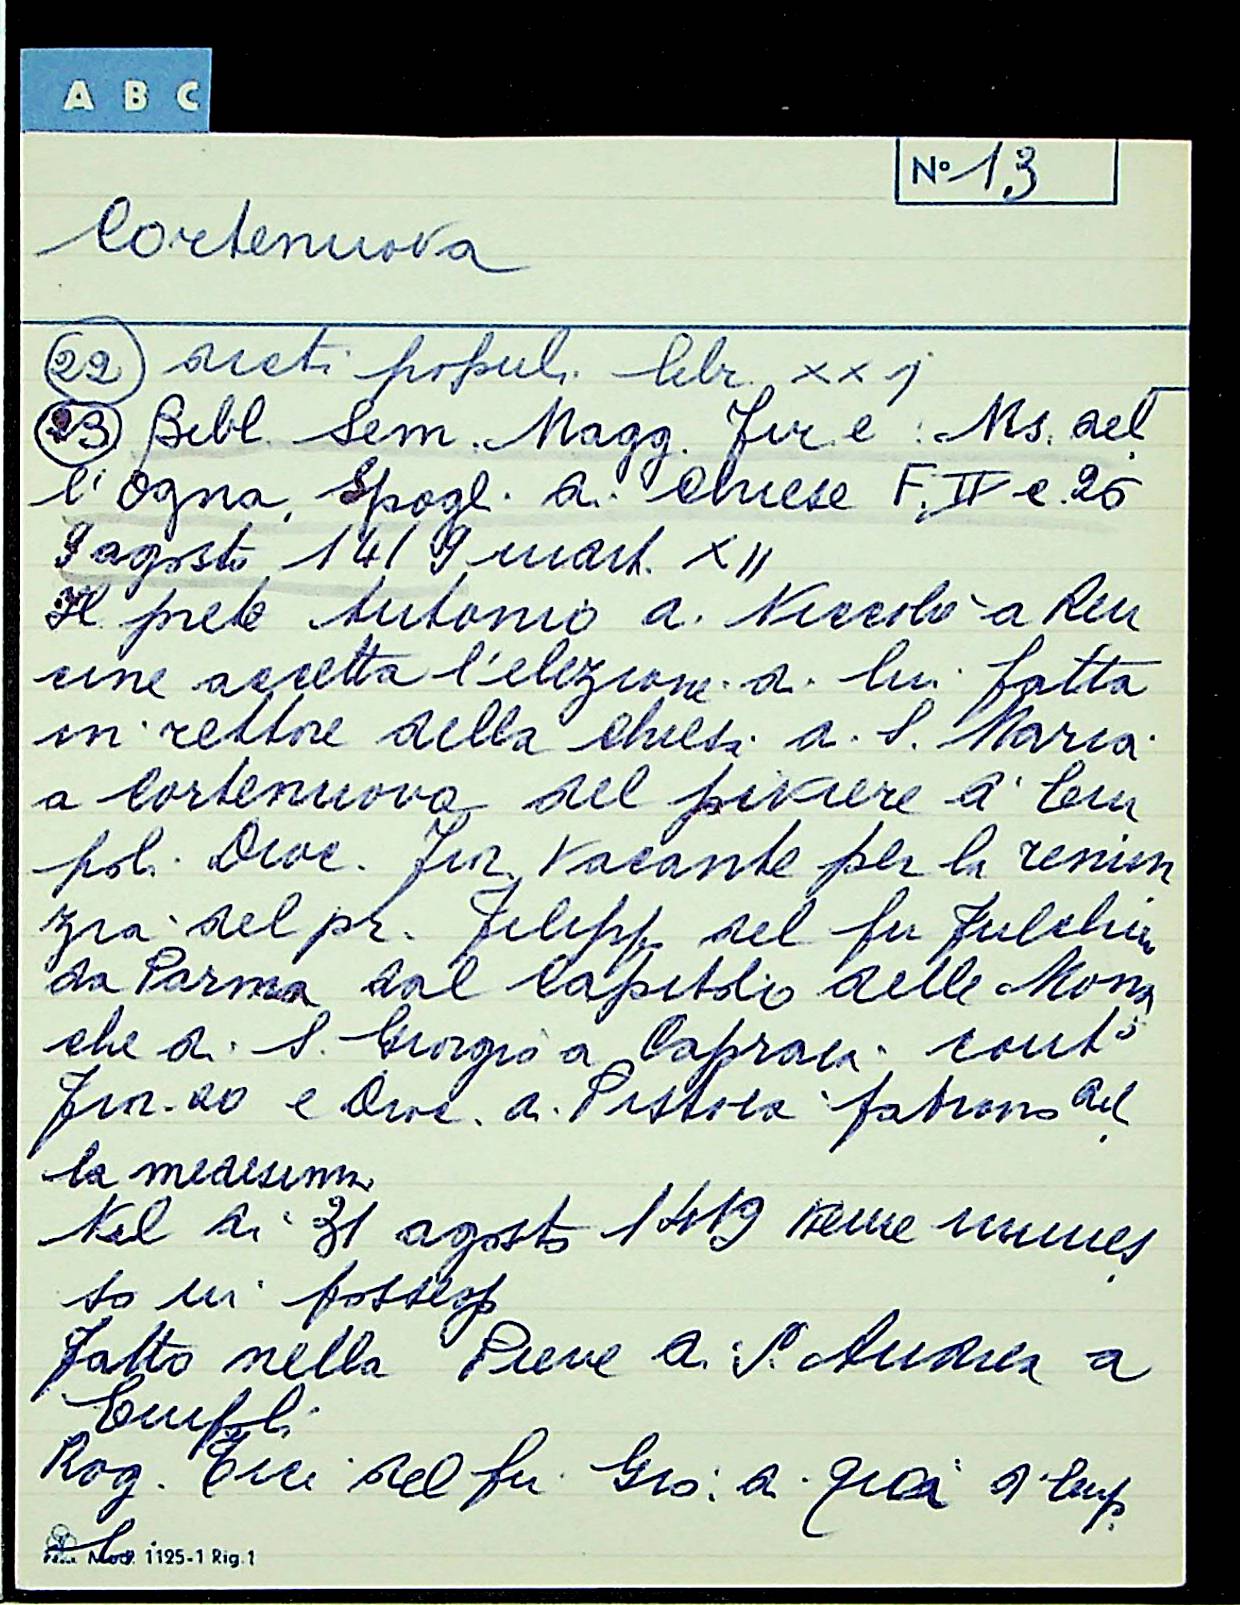 A B C
Nº 13
Cortenuova
22 dicti populi libr. xxj
23 Bibl. Sem. Magg. Fir.e: Ms. del
l'Ogna, Spogl. di Chiese F. II c. 25
9 agosto 1419 indit. XII
Il prete Antonio di Niccolò a
cine accetta l'elezione di lui fatta
in rettore della chiesa di S. Maria
a Cortenuova del piviere d'Em
poli Dioc. Fior. vacante per la renun
zia del pr. Filippo del fu
da Parma dal Capitolo delle Mona
che di S. Giorgio a Capraia cont.º
Fior.no e Dioc. di Pistoia patrono del
la medesima
Nel dì 31 agosto 1419 venne immes
so in possesso
Fatto nella Pieve di S. Andrea a
Empoli
Rog. del fu Gio: di d'Emp
li
Mod. 1125-1 Rig.1